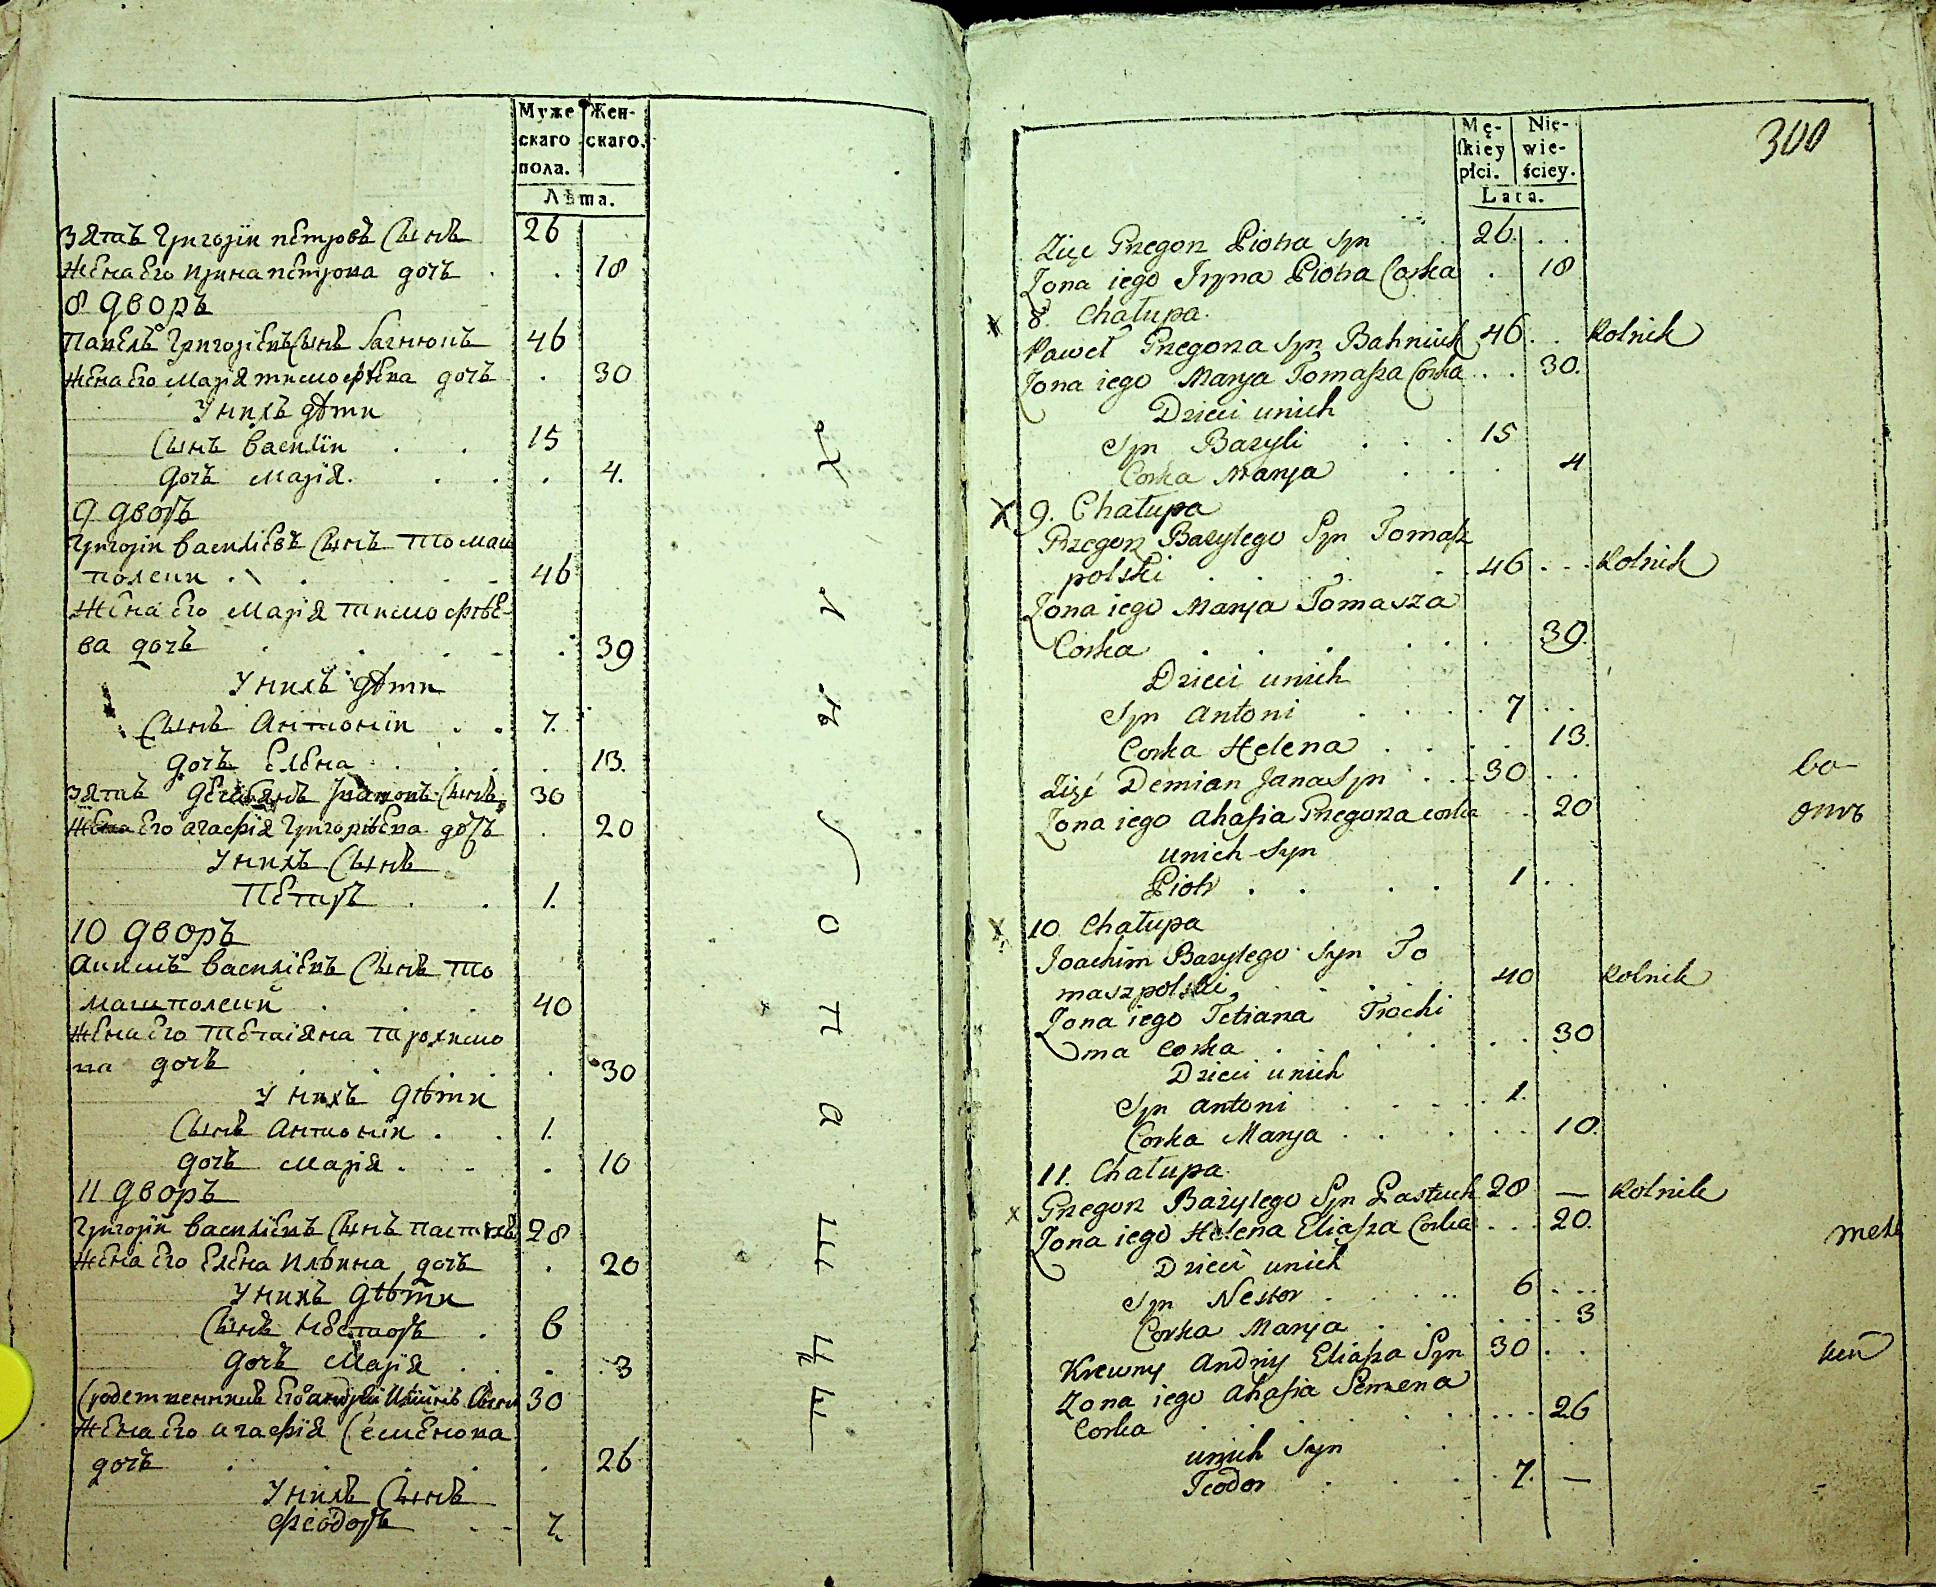 Муже
скаго
пола.
Жен-
скаго.
Лѣта.
Зять Григорій петровъ Сынъ 26
Жена его Ирина петрова дочь . . 18
8 дворъ
Павелъ Григоріевъ Сынъ Багнюкъ 46
Жена его Марія тимофѣева дочь . 30
У нихъ дѣти
Сынъ василій . . 15
дочь Марія. . . . 4.
9 дворъ
Григорій василіевъ Сынъ Томаш
полски . . . 46
Жена его Марія тимофѣе-
ва дочь . . . . 39
У нихъ дѣти
Сынъ Антоній . . 7.
дочь Елена . . . 13.
Зять Демьянъ Ивановъ Сынъ 30
Жена его агафія Григоріева дочь . 20
У нихъ Сынъ
Петръ . . 1.
10 дворъ
Акимъ василіевъ Сынъ То
машполский . . . 40
Жена его Тетіяна Трохимо
ва дочь . . . . 30
У нихъ дѣти
Сынъ Антоній . . 1.
дочь Марія . . . 10
11 дворъ
Григорій василіевъ Сынъ Пастухъ 28
Жена его Елена Ильина дочь . 20
У нихъ дѣти
Сынъ Несторъ . 6
дочь Марія . . . 3
Сродственникъ его андрѣй Ильинъ Сынъ 30
Жена его агафія Семенова
дочь . . . . . 26
У нихъ Сынъ
Феодоръ . . 7.
о
п
а
щ
300
Mę-
ſkiey
płci.
Nie-
wie-
ściey.
Lata.
Zięc Grzegorz Piotra Syn . 26. . .
Zona iego Iryna Piotra Corka . 18
8. Chałupa.
Paweł Grzegorza Syn Bahniuk 46 . . Rolnik
Zona iego Marya Tomaſza Corka . . 30.
Dzieci unich
Syn Bazyli . . . 15
Corka Marya . . . 4
9. Chałupa
Grzegorz Bazylego Syn Tomaſz
polski . . . . 46 . . . Rolnik
Zona iego Marya Tomasza
Corka . . . . . 39.
Dzieci unich
Syn Antoni . . . . 7 . .
Corka Helena . . . . 13.
Zięć Demian Jana Syn . . . 30 . .
во
Zona iego Ahafia Grzegorza corka . . 20
unich Syn
Piotr . . . . 1 . .
10. Chałupa
Joachim Bazylego Syn To
maszpolski . . . . 40 Rolnik
Zona iego Tetiana Trochi
ma Corka . . . . . 30
Dzieci unich
Syn Antoni . . . . 1.
Corka Marya . . . . . 10.
11. Chałupa
Grzegorz Bazylego Syn Pastuch 28 — Rolnik
Zona iego Helena Eliaſza Corka . . . 20.
Dzieci unich
Syn Nestor . . . . 6 . . .
Corka Marya . . . . . 3
Krewny Andriy Eliaſza Syn 30 . .
Zona iego Ahafia Semena
Corka . . . . . . . 26
unich Syn
Teodor . . . . 7. —